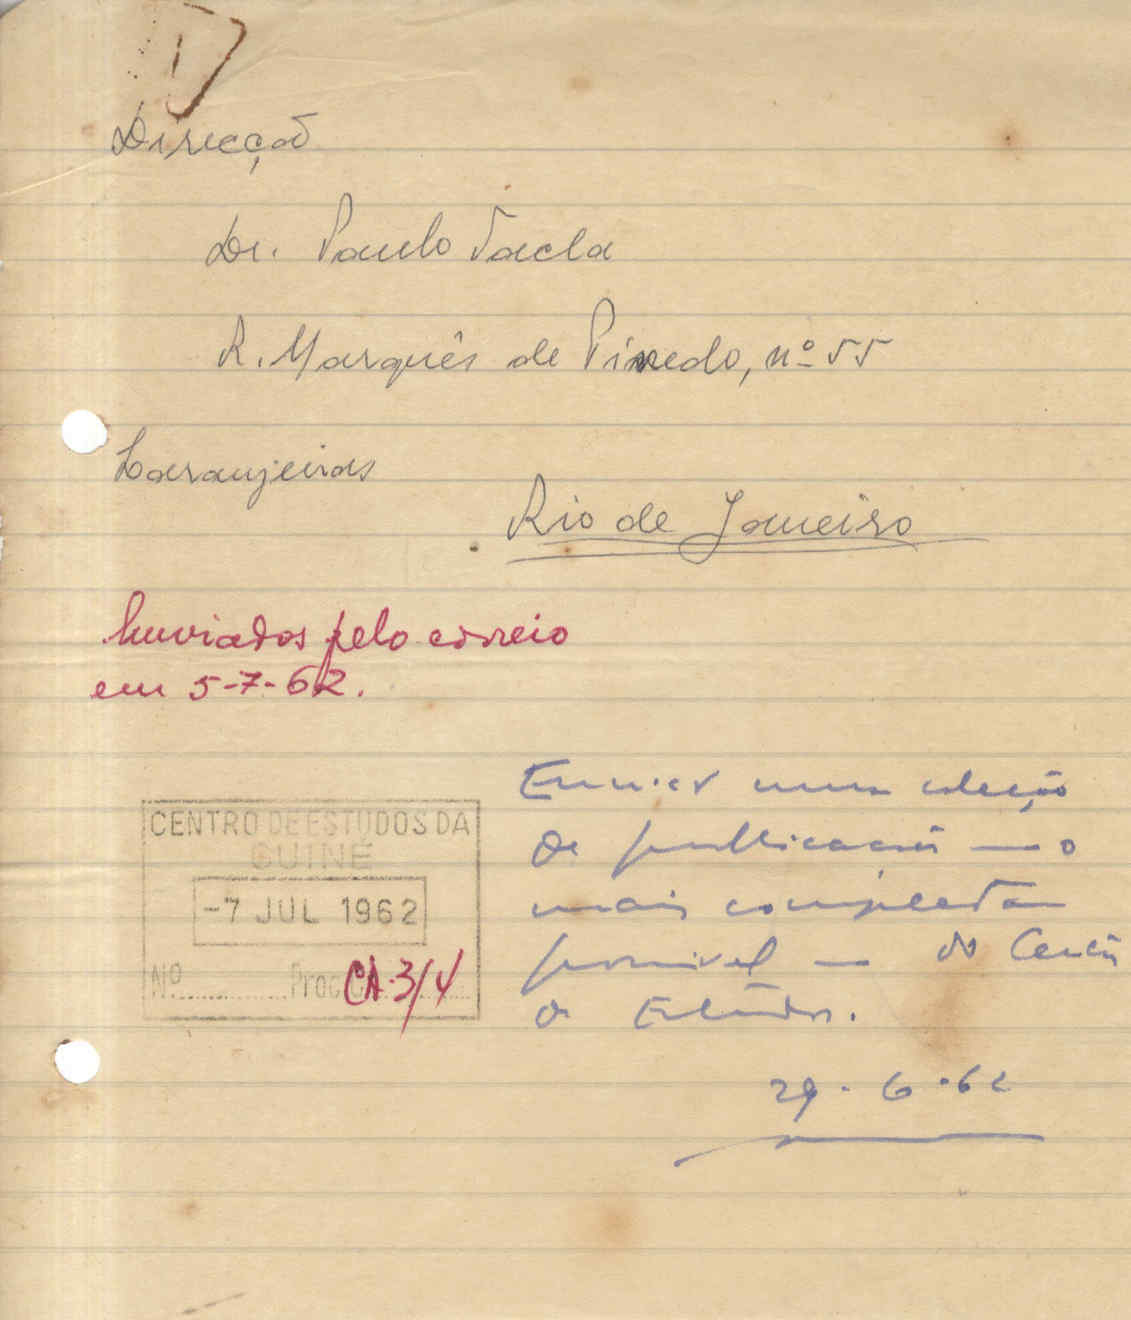 1
Direcção
Dr. Paulo Tacla
R. Marquês de Pinedo, nº 55
Laranjeiras
Rio de Janeiro
Enviados pelo correio
em 5-7-62.
Enviar uma coleção
de publicacões — o
mais completa
possivel — do Centro
de Estudos.
29-6-62
CENTRO DE ESTUDOS DA
GUINÉ
-7 JUL 1962
Nº............ Proc CA-3/4